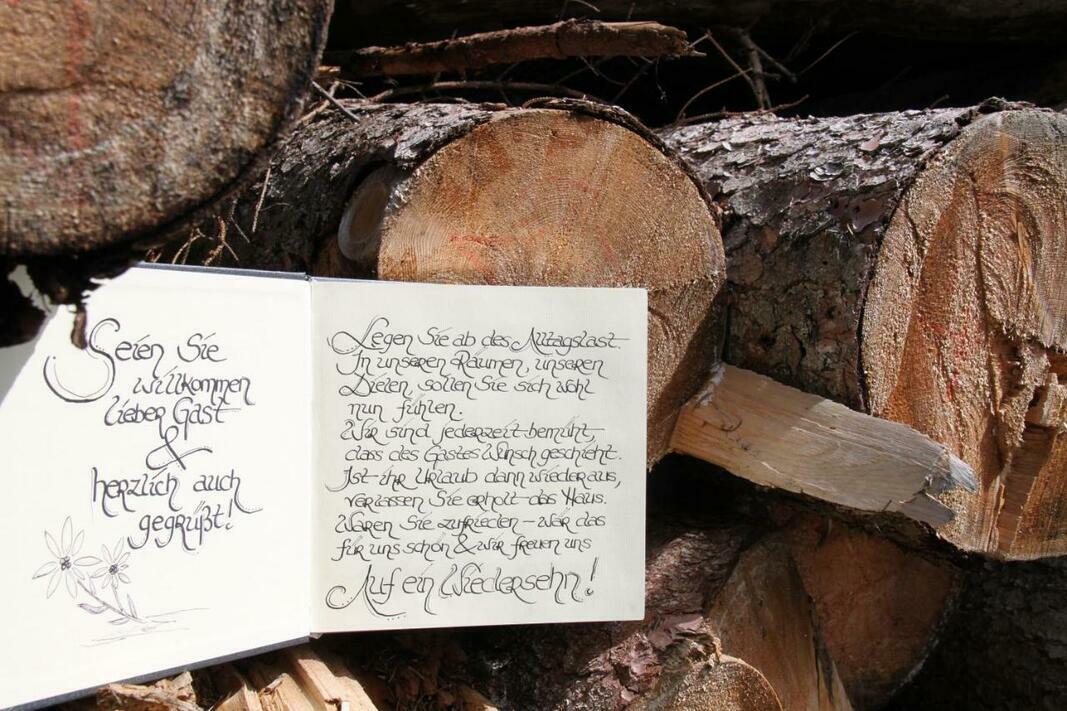 Seien Sie
willkommen
lieber Gast
&
herzlich auch
gegrüßt!
Legen Sie ab des Alltagslast.
In unseren Räumen, unseren
Dielen, sollen Sie sich wohl
nun fühlen.
Wir sind jederzeit bemüht,
dass des Gastes Wunsch geschieht.
Ist ihr Urlaub dann wieder aus,
verlassen Sie erholt das Haus.
Waren Sie zufrieden - wär das
für uns schön & wir freuen uns
Auf ein Wiedersehn!